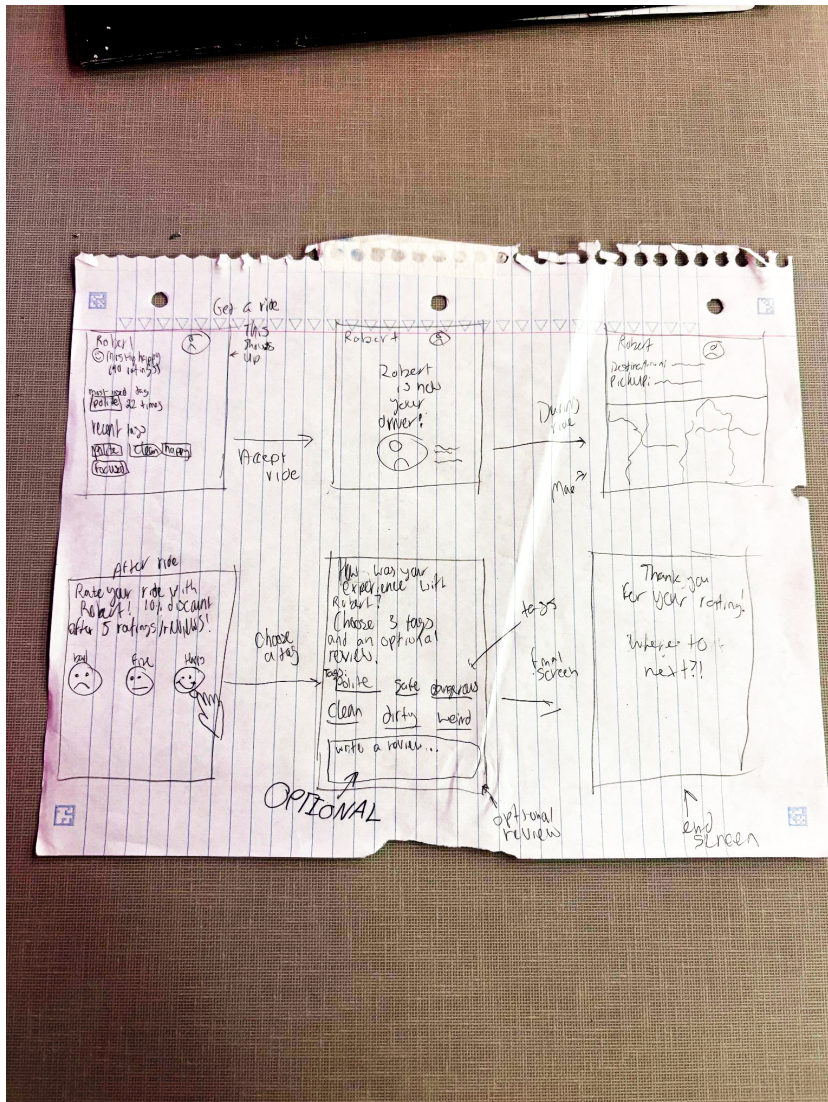 Get a ride
This
shows
up
Robert
Mostly happy
190 ratings
most used tag
polite 22 times
recent tags
polite clean happy
focused
Accept
ride
Robert
Robert
is now
your
driver!
During
ride
Map
Robert
Destination:
Pickup:
After ride
Rate your ride with
Robert! 10% discount
after 5 ratings/reviews!
Bad Fine Happy
Choose
a tag
How was your
experience with
Robert?
Choose 3 tags
and an optional
review.
Tags:
polite safe dangerous
clean dirty weird
write a review...
OPTIONAL
tags
final
screen
optional
review
Thank you
for your rating!
Where to
next?!
end
screen